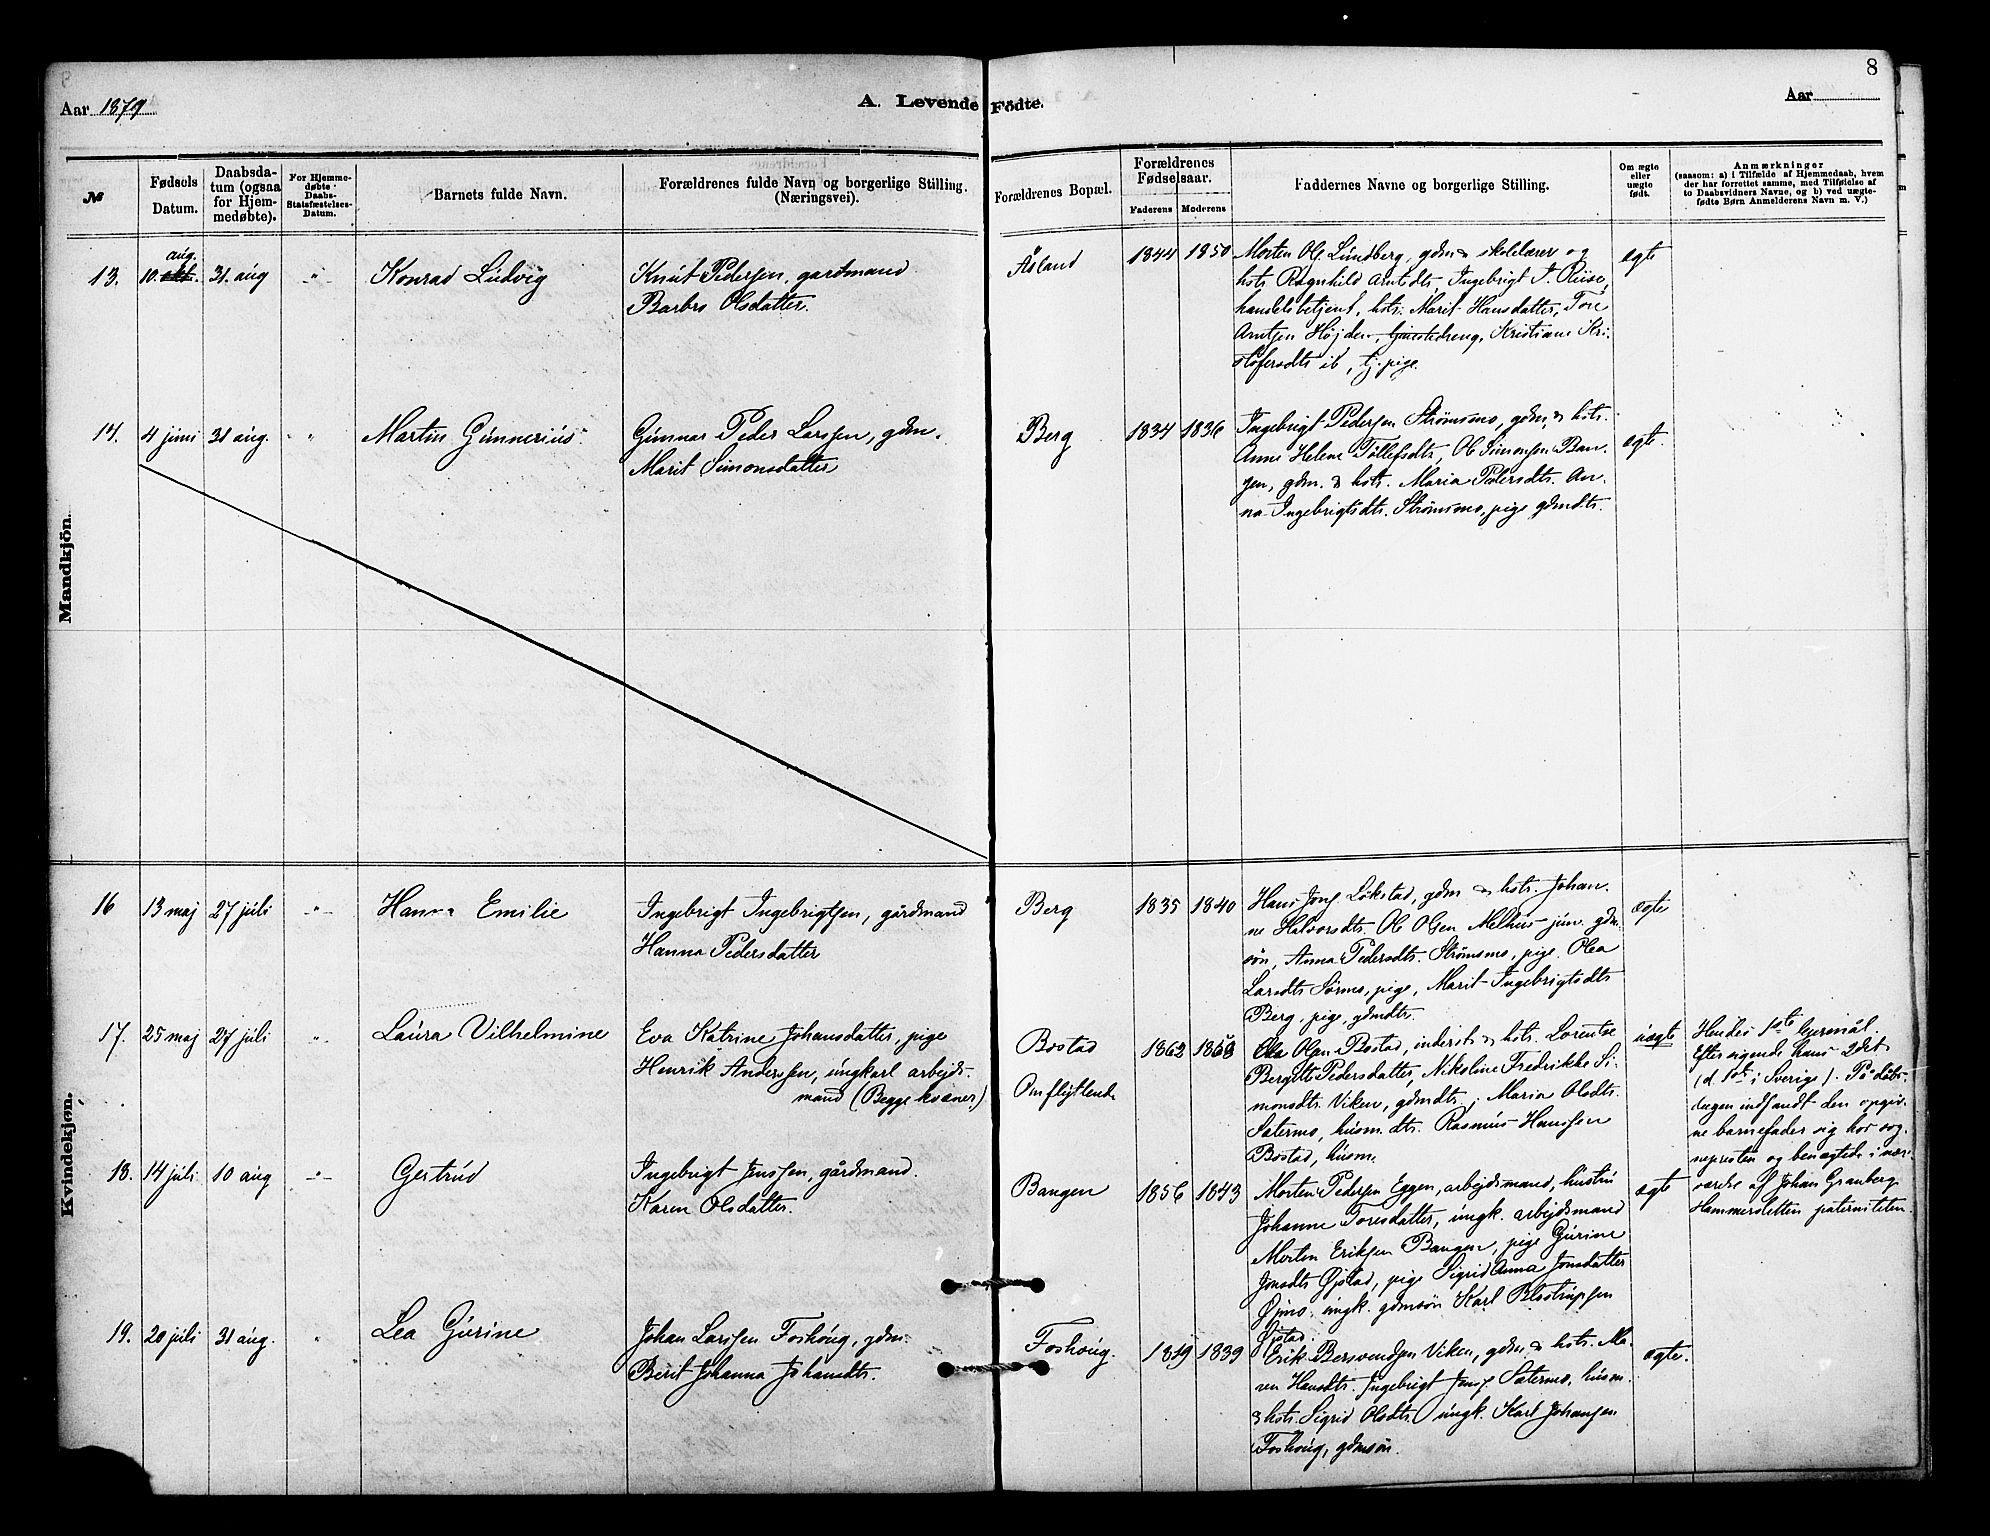 8
Aar 1879
A. Levende Födte.
Aar
№
Fødsels Datum.
Daabsdatum (ogsaa for Hjemmedøbte).
For Hjemmedøbte Daabs-Stadfæstelses-Datum.
Barnets fulde Navn.
Forældrenes fulde Navn og borgerlige Stilling. (Næringsvei).
Forældrenes Bopæl.
Forældrenes Fødselsaar.
Faderens
Moderens
Faddernes Navne og borgerlige Stilling.
Om ægte eller uægte født.
Anmærkninger
(saasom: a) i Tilfælde af Hjemmedaab, hvem
der har forrettet samme, med Tilføielse af
to Daabsvidners Navne, og b) ved uægte-
fødte Børn Anmelderens Navn m. V.)
Mandkjön.
13.
aug.
10. okt.
31. aug
Konrad Ludvig
Knut Pedersen, gardmand
Barbro Olsdatter.
Åsland
1844
1850
Morten Ols. Lundberg, gdm & skolelærer og
hstr Ragnhild Arntdtr, Ingebrigt J. Riise,
handelsbetjent, hstr. Marit Hansdatter, Tore
Arntsen Højden, tjenestedreng, Kristiane Kri-
stofersdtr ib, tj. pige.
egte
14.
4 juni
31 aug.
Martin Gunnerius
Gunnar Peder Larssen, gdm.
Marit Simonsdatter
Berg
1834
1836
Ingebrigt Pedersen Strømsmo, gdm, & hstr.
Anne Helene Tollefsdtr, Ol Simonsen Ban-
gen, gdm. & hstr. Maria Pedersdtr. An-
na Ingebrigtsdtr. Strømsmo, pige gdmdtr.
egte.
Kvindekjøn.
16
13 maj
27 juli
Hanna Emilie
Ingebrigt Ingebrigtsen, gårdmand
Hanna Pedersdatter
Berg
1835
1840
Hans Jons. Løkstad, gdm & hstr. Johan-
ne Halvorsdtr. Ol Olsen Melhus jun. gdm
søn, Anna Pedersdtr. Strømsmo, pige. Olea
Larsdtr Sørmo, pige, Marit Ingebrigtsdtr
Berg, pige, gdmdtr.
ægte
17.
25 maj
27 juli
Laura Vilhelmine
Eva Katrine Johansdatter, pige
Henrik Anderssen, ungkarl arbejds-
mand (Begge kvæner.)
Bostad
Omflyttende
1862
1858
Ola Olsen Bostad, inderst & hstr. Lorentse
Bergitte Pedersdatter, Nikoline Fredrikke Si-
monsdtr. Viken, gdmdtr., Maria Olsdtr.
Satermo, husm.dtr. Rasmus Hanssen
Bostad, husm.
uægte
Hendes 1ste lejermål.
Efter sigende hans 2det
(d. 1ste i Sverige). På dåbs-
dagen indfandt den opgiv-
ne barnefader sig hos sog-
nepresten og benægtede i nær-
værelse af Johan Granberg
Hammersletten paterniteten.
18.
14 juli
10 aug
Gertrud
Ingebrigt Jenssen, gårdmand.
Karen Olsdatter.
Bangen
1856
1843
Morten Pedersen Eggen, arbejdsmand, hustru
Johanne Toresdatter, ungk. arbejdsmand
Morten Eriksen Bangen, pige Gurine
Jonsdtr Øjstad, pige Sigrid Anna Jonsdatter
Øjmo, ungk. gdmsøn Karl Blostrupsen
Øjstad.
egte
19.
20 juli
31 aug.
Lea Gurine
Johan Larssen Foshoug, gdm.
Berit Johanna Johansdtr.
Foshoug.
1839
Erik Bersvendsen Viken, gdm. & hstr. Ma-
ren Hansdtr. Ingebrigt Jens. Satermo, husm.
& hstr. Sigrid Olsdtr, ungk. Karl Johansen
Foshoug, gdmsøn.
ægte.